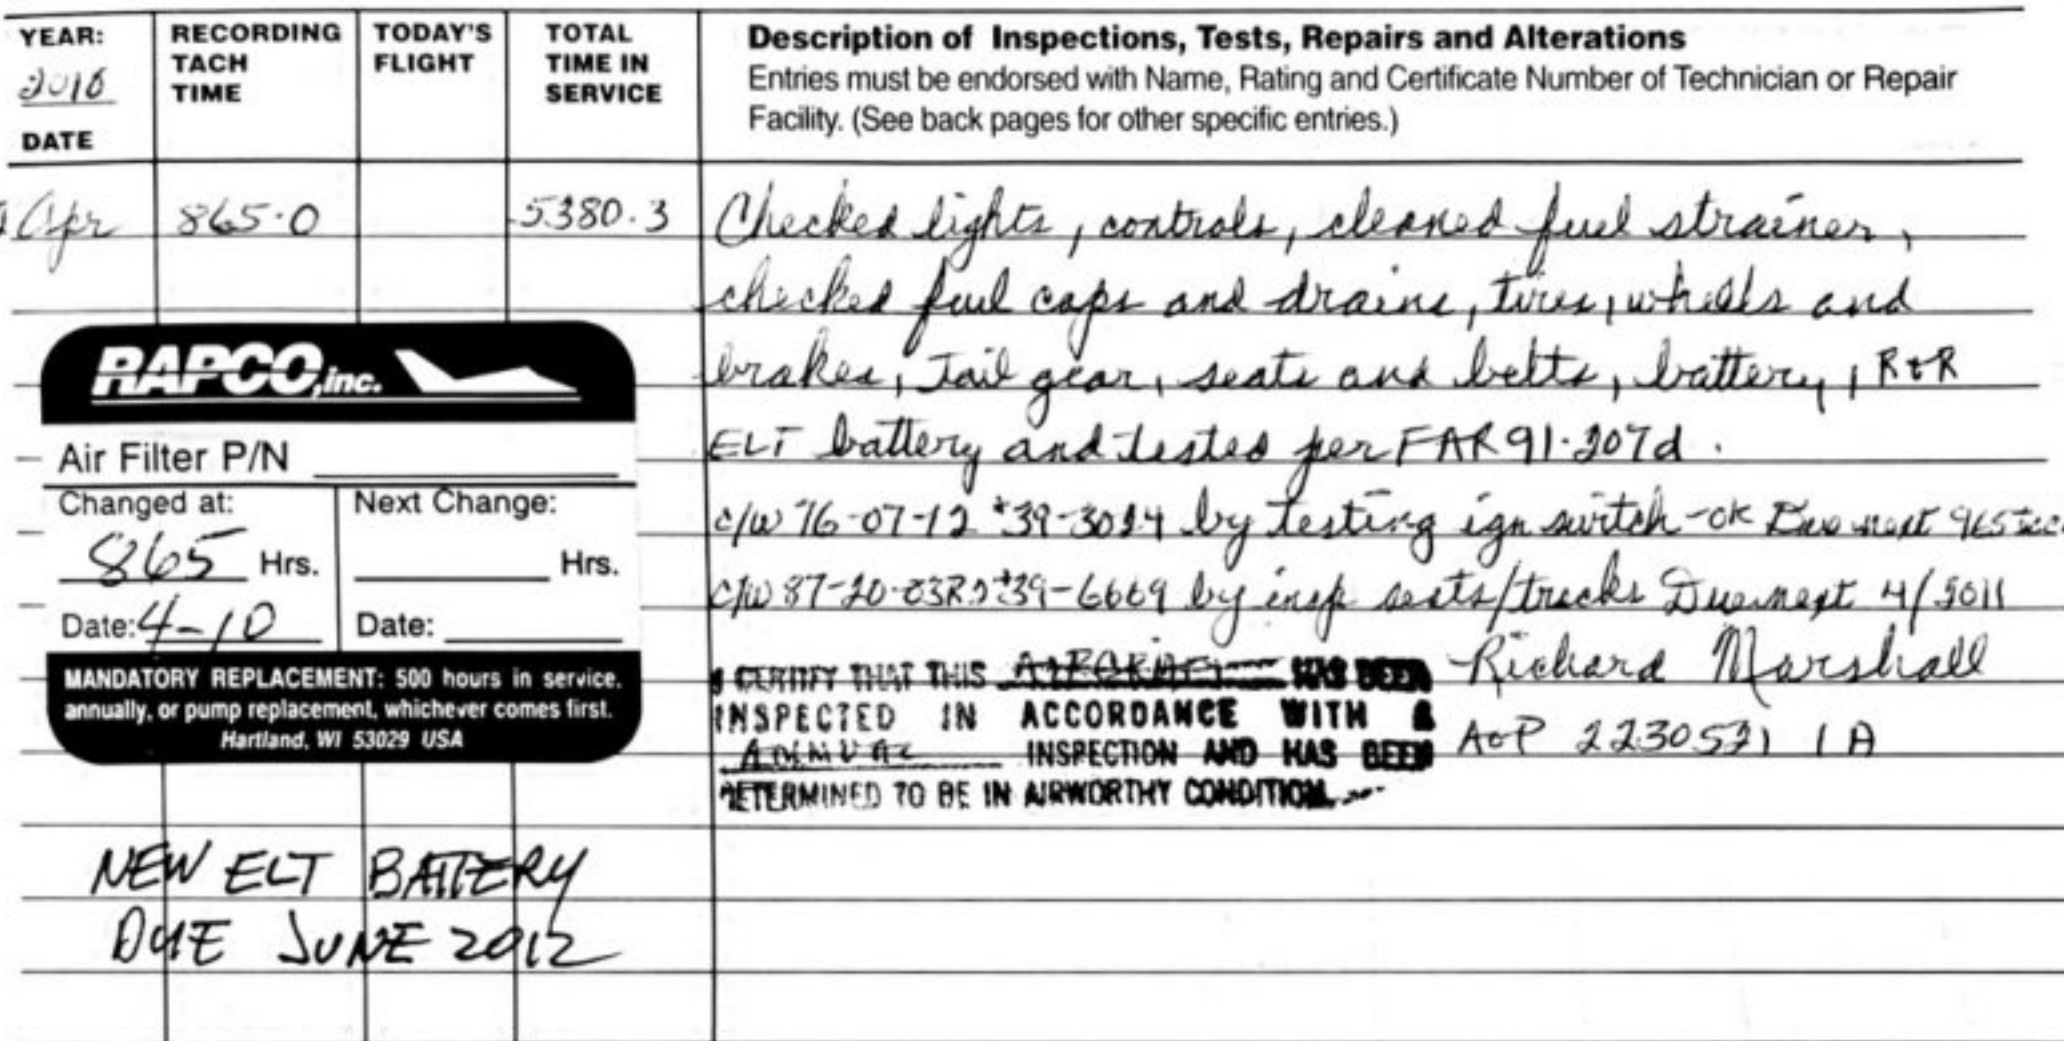 YEAR:
2010
DATE
RECORDING
TACH
TIME
TODAY'S
FLIGHT
TOTAL
TIME IN
SERVICE
Description of Inspections, Tests, Repairs and Alterations
Entries must be endorsed with Name, Rating and Certificate Number of Technician or Repair
Facility. (See back pages for other specific entries.)
Apr 865.0 5380.3 Checked lights, controls, cleaned fuel strainer,
checked fuel caps and drains, tires, wheels and
brakes, Tail gear, seats and belts, battery, R&R
ELT battery and tested per FAR 91-207d.
c/w 76-07-12 #39-3024 by testing ign switch-ok Due next 965
c/w 87-20-03R2 #39-6669 by insp seats/tracks Due next 4/2011
I CERTIFY THAT THIS AIRCRAFT HAS BEEN
INSPECTED IN ACCORDANCE WITH A
ANNUAL INSPECTION AND HAS BEEN
DETERMINED TO BE IN AIRWORTHY CONDITION.
Richard Marshall
A&P 2230521 IA
RAPCO, inc.
Air Filter P/N
Changed at:
865 Hrs.
Date: 4-10
Next Change:
Hrs.
Date:
MANDATORY REPLACEMENT: 500 hours in service,
annually, or pump replacement, whichever comes first.
Hartland, WI 53029 USA
NEW ELT BATTERY
DUE JUNE 2012